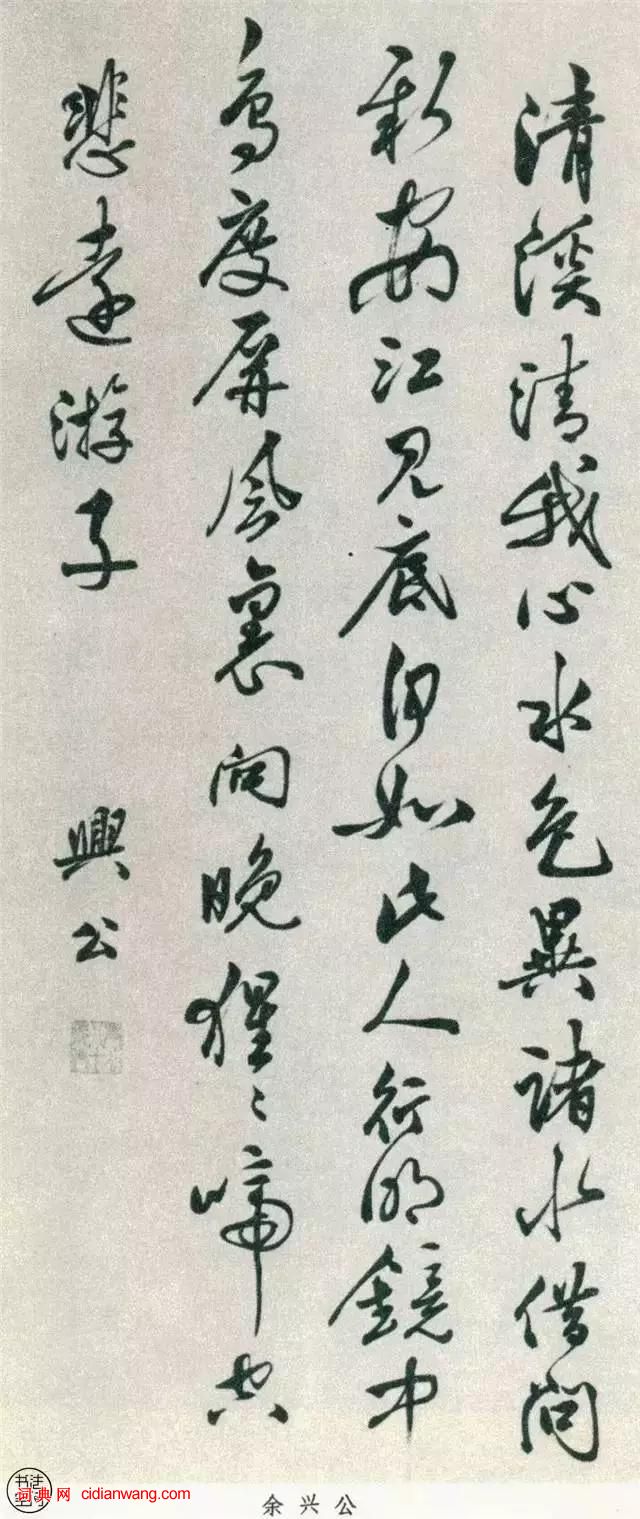 清溪清我心水色異諸水借问
新安江见底何如此人行明鏡中
鸟度屏风裏向晚猩〻啼空
悲遠游子
興公
词典网 cidianwang.com
余兴公